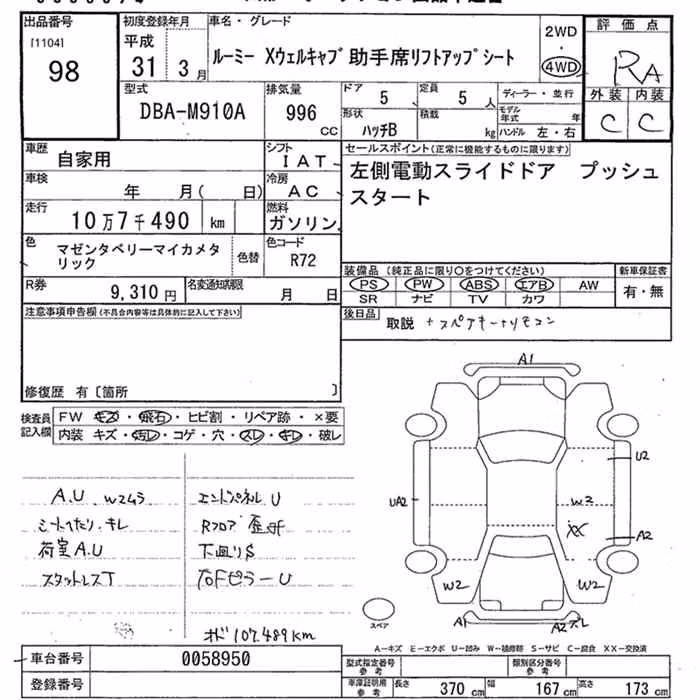 出品番号 初度登録年月 車名・グレード 評価点
[1104] 98
平成 31 3月
ルーミー Xウェルキャブ 助手席リフトアップシート
2WD ・ 4WD
RA
型式 排気量 ドア 定員 ディーラー・並行 外装 内装
DBA-M910A 996 cc 5 5人
モデル年式 年
C C
形状 ハッチB 積載 kg ハンドル 左・右
車歴 自家用 シフト IAT
セールスポイント(正常に機能するものに限ります)
左側電動スライドドア プッシュ
スタート
車検 年 月( 日) 冷房 AC
走行 10万7千490 km 燃料 ガソリン
色 マゼンタベリーマイカメタ
リック
色替 色コード R72
装備品(純正品に限り○をつけてください) 新車保証書
PS PW ABS エアB AW 有・無
SR ナビ TV カワ
R券 9,310円 名変通知期限 月 日
後日品 取説 +スペアキー+リモコン
注意事項申告欄(不具合内容等は具体的に記入して下さい)
修復歴 有〔箇所 〕
検査員記入欄
FW キズ・飛石・ヒビ割・リペア跡・×要
内装 キズ・汚レ・コゲ・穴・スレ・キレ・破レ
A.U W2ムラ エンドパネルU
シートへたり・キレ Rフロア歪
荷室A.U 下廻りS
スタットレスT 右FピラーU
オド107,489km
A1
U2
UA2 W2
XX A2
W2 W2
スペア
A1 A2
A-キズ E-エクボ U-凹み W-補修跡 S-サビ C-腐食 XX-交換済
車台番号 0058950
登録番号
型式指定番号 参考 類別区分番号 参考
車庫証明用 参考 長さ 370cm 幅 167cm 高さ 173cm